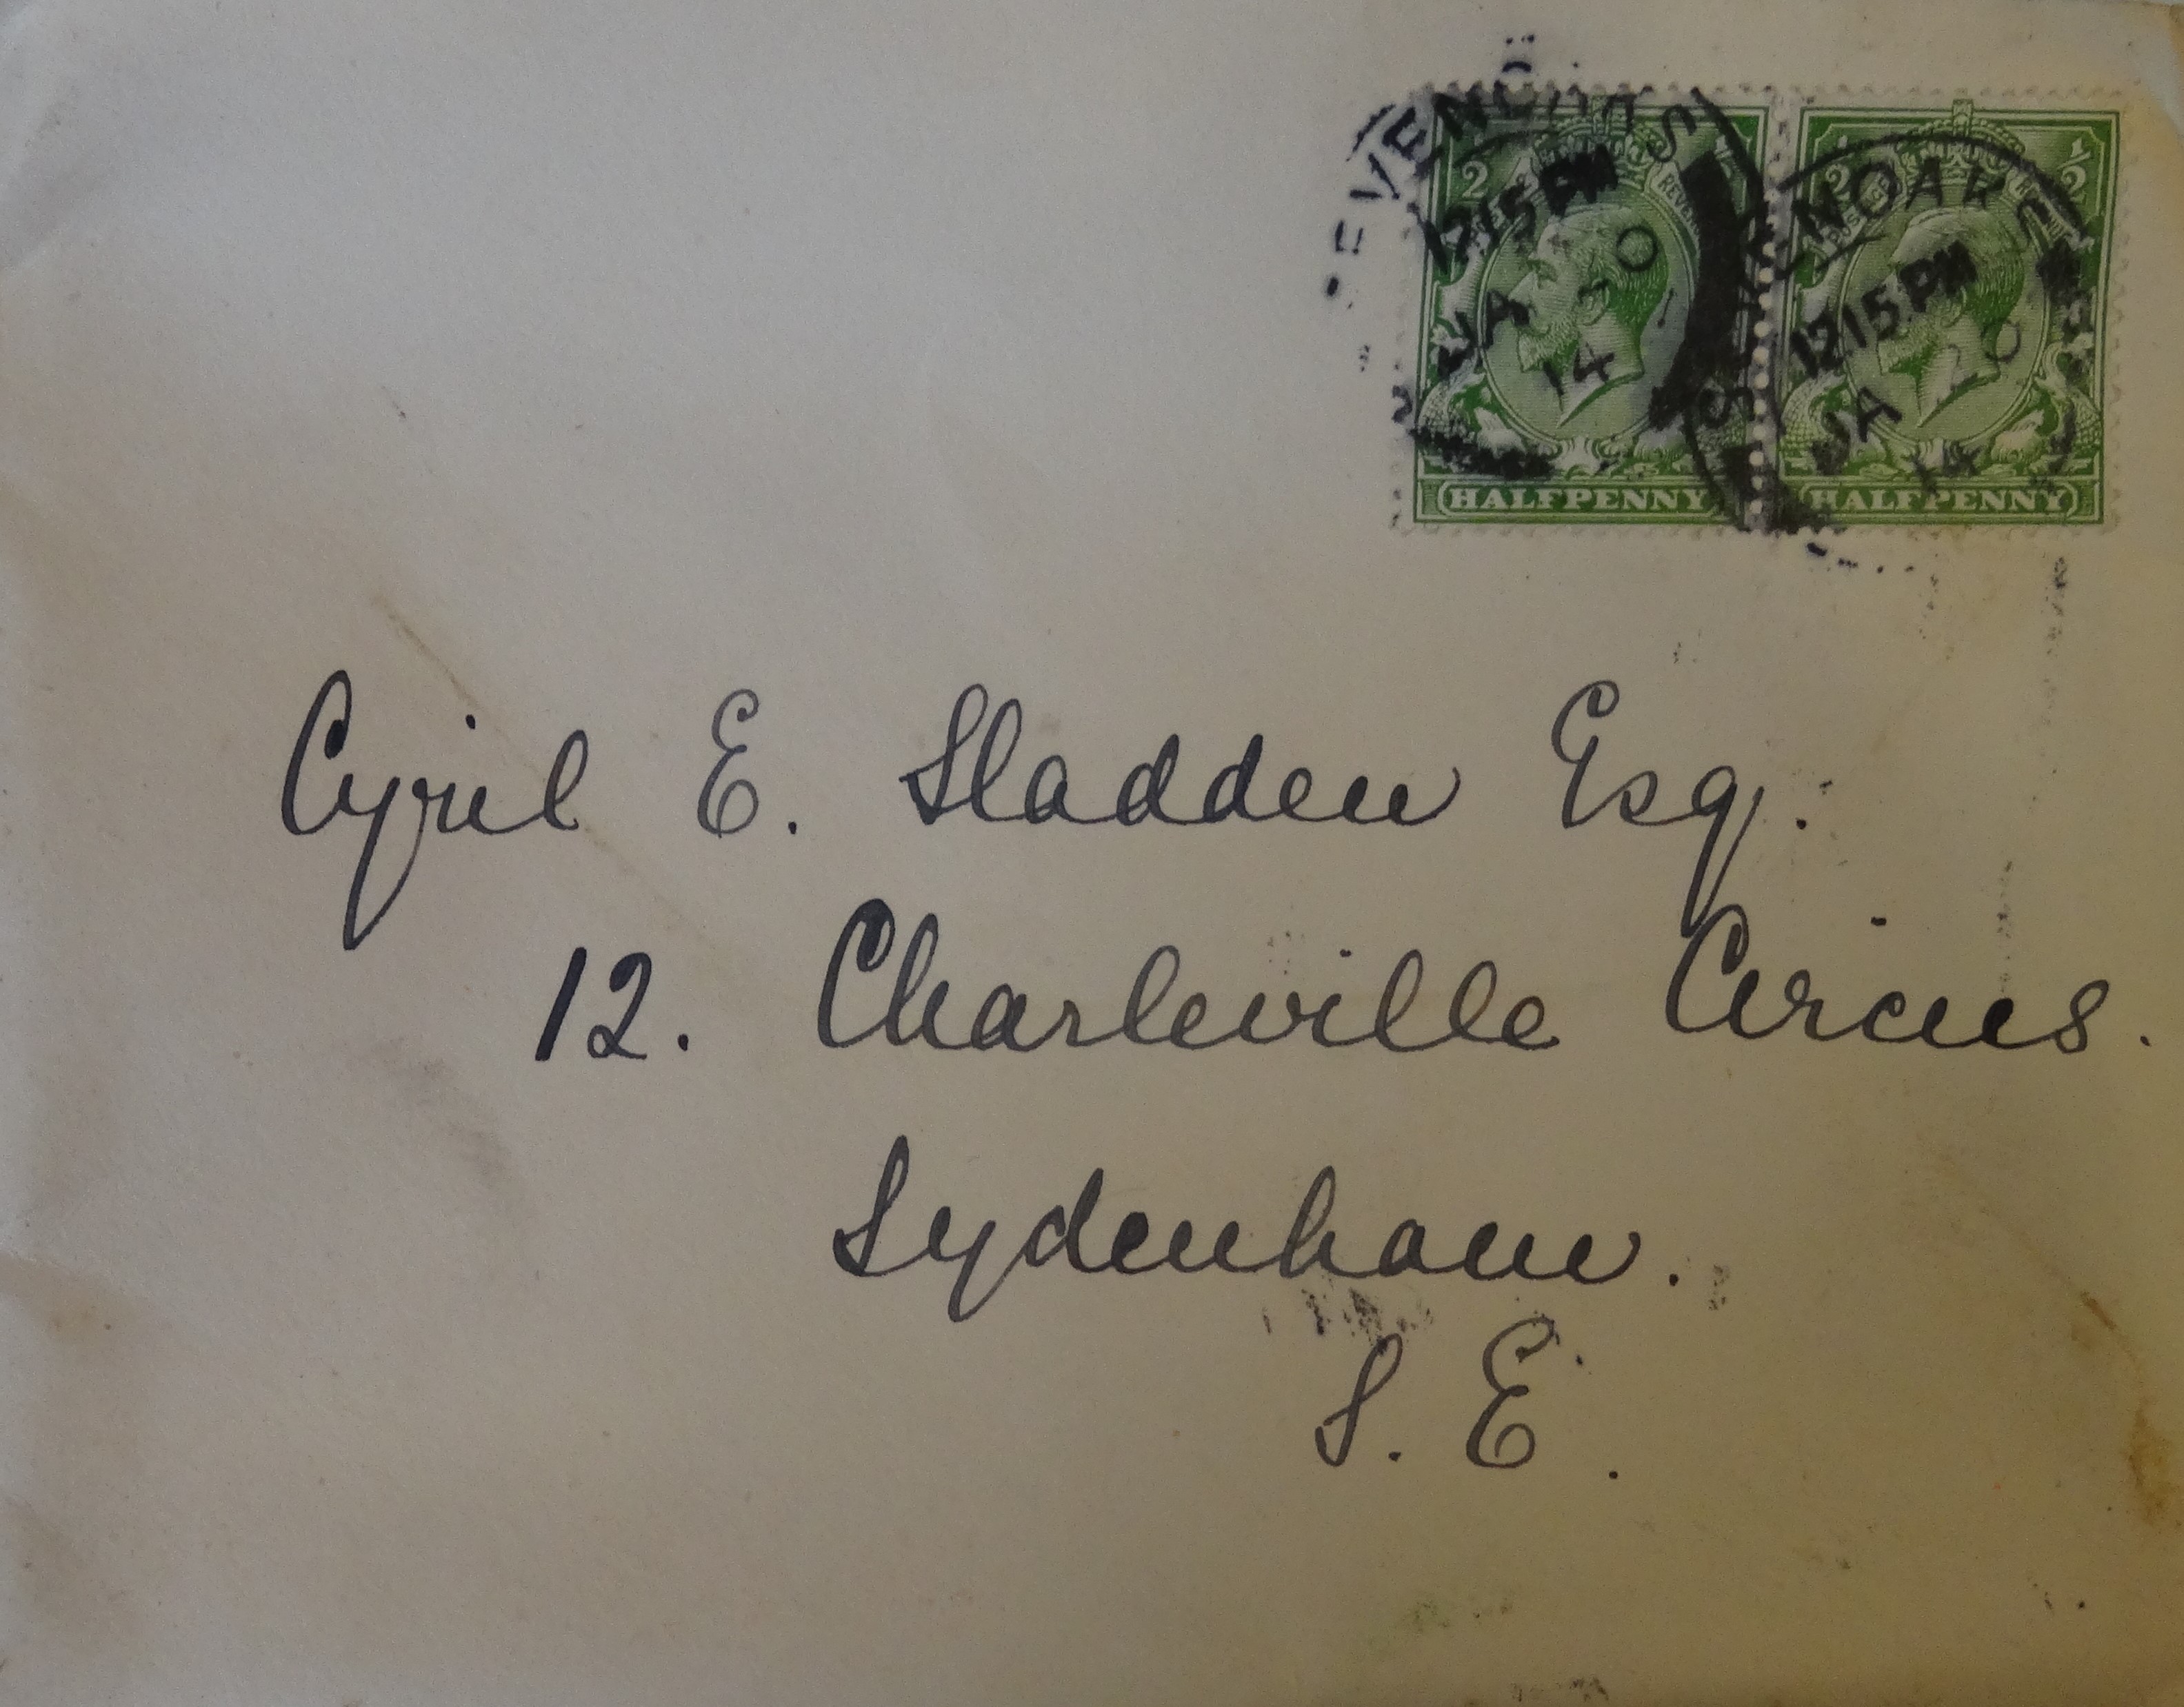 SEVENOAKS
12 15 PM
JA 20
14
SEVENOAKS
12 15 PM
JA 20
14
HALFPENNY
HALFPENNY
Cyril E. Sladden Esq.
12. Charleville Circus.
Sydenham.
S. E.